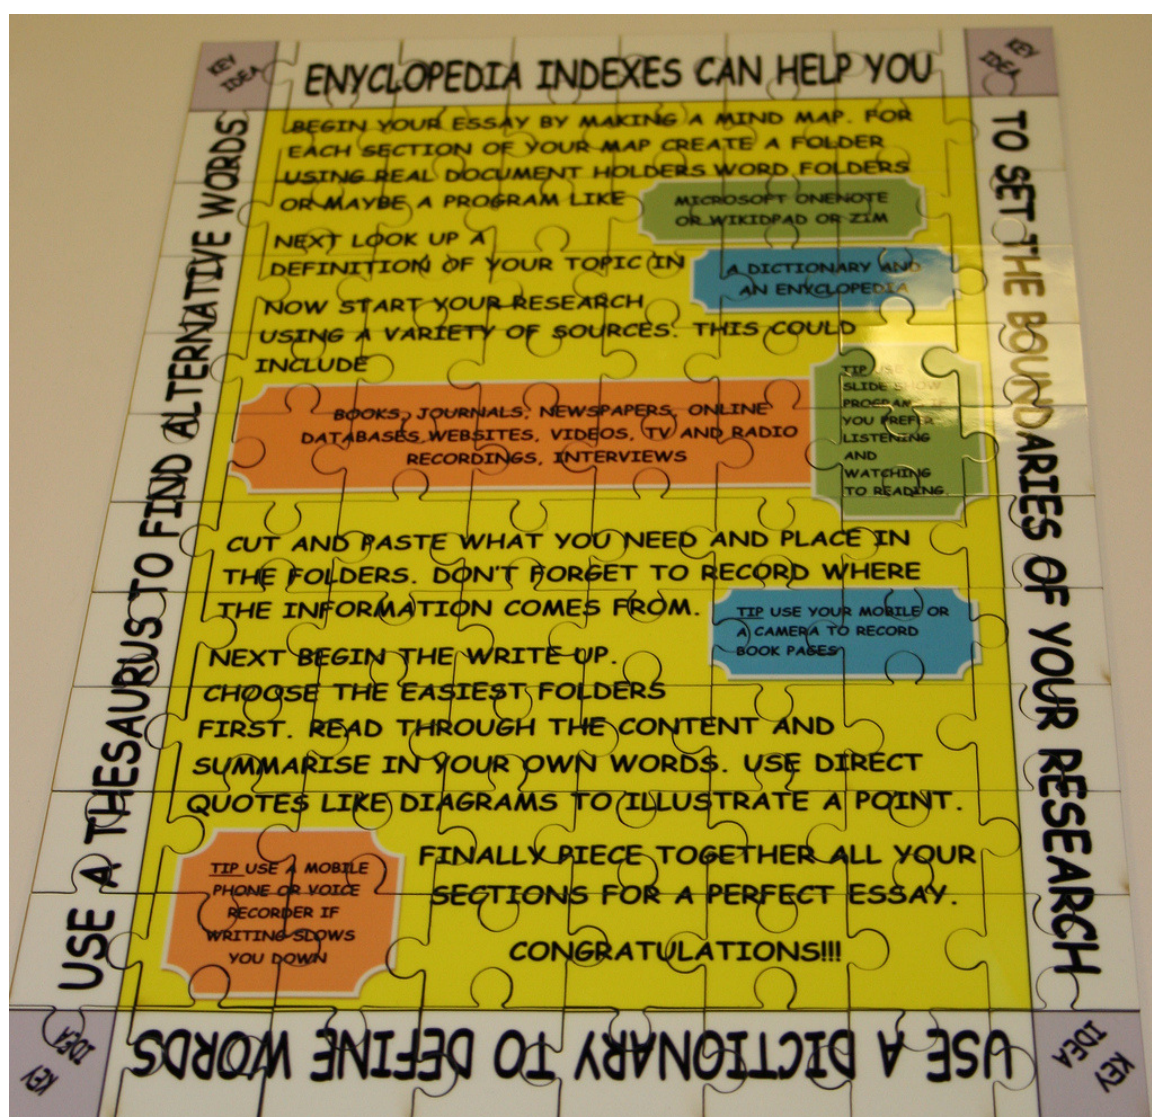 KEY
IDEA
ENYCLOPEDIA INDEXES CAN HELP YOU
KEY
IDEA
TO SET THE BOUNDARIES OF YOUR RESEARCH
KEY
IDEA
USE A DICTIONARY TO DEFINE WORDS
KEY
IDEA
USE A THESAURUS TO FIND ALTERNATIVE WORDS
BEGIN YOUR ESSAY BY MAKING A MIND MAP. FOR
EACH SECTION OF YOUR MAP CREATE A FOLDER
USING REAL DOCUMENT HOLDERS WORD FOLDERS
OR MAYBE A PROGRAM LIKE
MICROSOFT ONENOTE
OR WIKIDPAD OR ZIM
NEXT LOOK UP A
DEFINITION OF YOUR TOPIC IN
A DICTIONARY AND
AN ENYCLOPEDIA
NOW START YOUR RESEARCH
USING A VARIETY OF SOURCES. THIS COULD
INCLUDE
BOOKS, JOURNALS, NEWSPAPERS, ONLINE
DATABASES, WEBSITES, VIDEOS, TV AND RADIO
RECORDINGS, INTERVIEWS
TIP USE
SLIDE SHOW
PROGRAMS IF
YOU PREFER
LISTENING
AND
WATCHING
TO READING.
CUT AND PASTE WHAT YOU NEED AND PLACE IN
THE FOLDERS. DON'T FORGET TO RECORD WHERE
THE INFORMATION COMES FROM.
TIP USE YOUR MOBILE OR
A CAMERA TO RECORD
BOOK PAGES
NEXT BEGIN THE WRITE UP.
CHOOSE THE EASIEST FOLDERS
FIRST. READ THROUGH THE CONTENT AND
SUMMARISE IN YOUR OWN WORDS. USE DIRECT
QUOTES LIKE DIAGRAMS TO ILLUSTRATE A POINT.
TIP USE A MOBILE
PHONE OR VOICE
RECORDER IF
WRITING SLOWS
YOU DOWN
FINALLY PIECE TOGETHER ALL YOUR
SECTIONS FOR A PERFECT ESSAY.
CONGRATULATIONS!!!